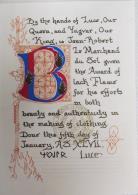 By the hands of Luce, Our
Queen, and Yngvar, Our
King, is Jean-Robert
Le Marchand
du Sel given
the Award of
Lack Fleur
for his efforts
in both
beauty and authenticity in
the making of clothing.
Done this fifth day of
January, A.S. XLVII
Luce